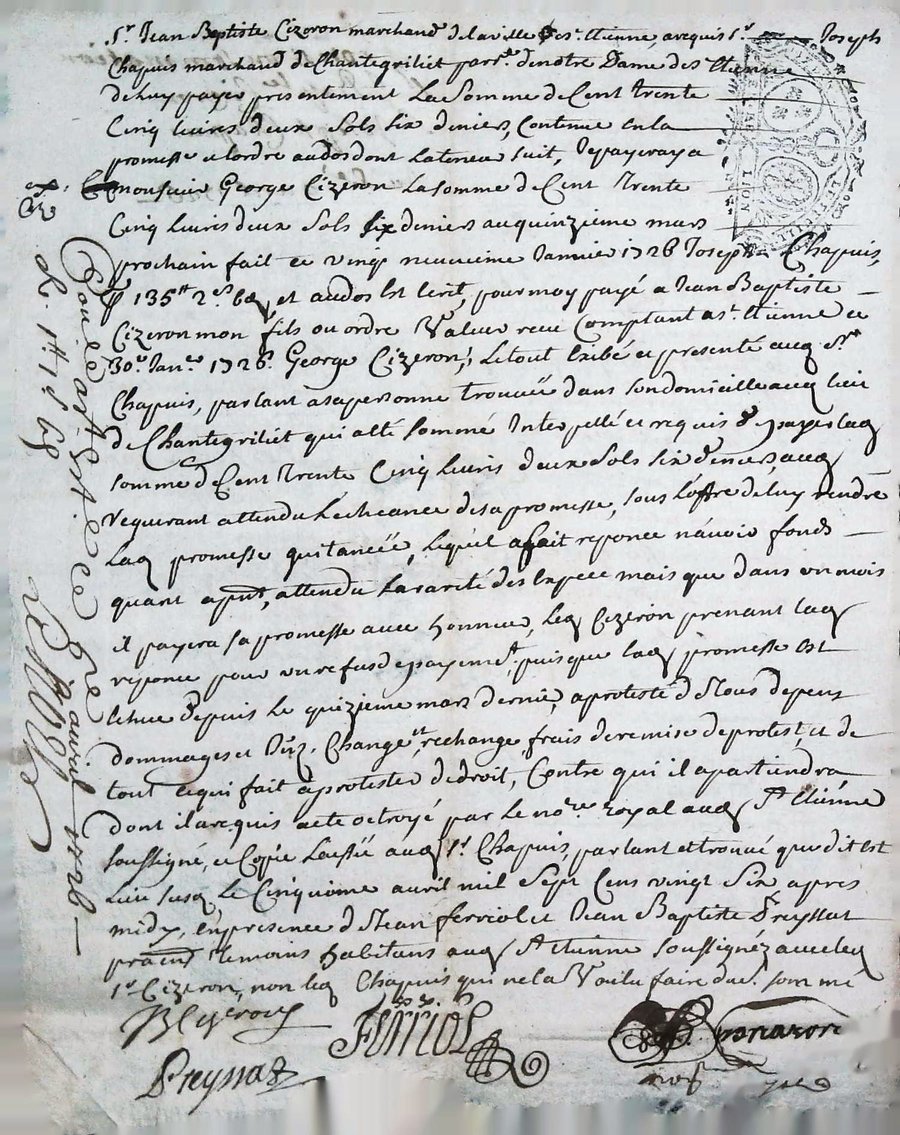 Sr. Jean Baptiste Cizeron marchand de la ville de St. Etienne, a requis Sr. Joseph
Chapuis marchand de Chantegrillet parse. de notre Dame de St. Etienne
de luy payer presentement La Somme de Cent trente
Cinq livres deux Sols Six deniers, Contenue en la
promesse a lordre au dos dont la teneur suit, Je payeray a
monsieur George Cizeron La somme de Cent Trente
Cinq Livres deux Sols six deniers au quinzieme mars
prochain fait ce vingt neuvieme Janvier 1726 Joseph Chapuis,
135tt 2s 6d, et au dos Est Ecrit, pour moy payé a Jean Baptiste
Cizeron mon fils ou ordre Valeur receu Comptant a St. Etienne ce
30e. Janer. 1726. George Cizeron, Le tout Exibé et presenté audq Sr.
Chapuis, parlant a sa personne trouvée dans son domicille audq lieu
de Chantegrillet qui a été Sommé Interpellé et requis de payer lad
somme de Cent Trente Cinq Livres deux Sols Six deniers, audq
requerant attendu L'écheance de sa promesse, sous L'offre de luy rendre
Ladq promesse quitancée, Lequel a fait reponce n'avoir fonds
quant a pnt, attendu La rareté des Espece mais que dans un mois
il payera sa promesse avec honneur, Ledq Cizeron prenant ladq
reponce pour un refus de payemet. puisque ladq promesse est
echue depuis Le quizieme mars dernier, a protesté de Tous depens
dommages et Intz. Change et rechange frais de remise de protest, et de
tout ce qui fait a protester de droit, Contre qui il apartiendra
dont il a requis acte octroyé par Le nore royal audq St. Etienne
soussigné, et Copie Laissé audq Sr. Chapuis, parlant et trouvé que dit est
Lieu susdq Le Cinquieme avril mil Sept Cens vingt Six, apres
midy, En presence de Jean ferriol et Jean Baptiste Preyssat
pratns Temoins habitans audq St. Etienne soussignéz avec ledq
Sr. Cizeron, non ledq Chapuis qui ne la Voulu faire duet. sommé
JB Cizeron
Ferriol
Preyssat
Con. le a St. E. ce 6re avril 1726